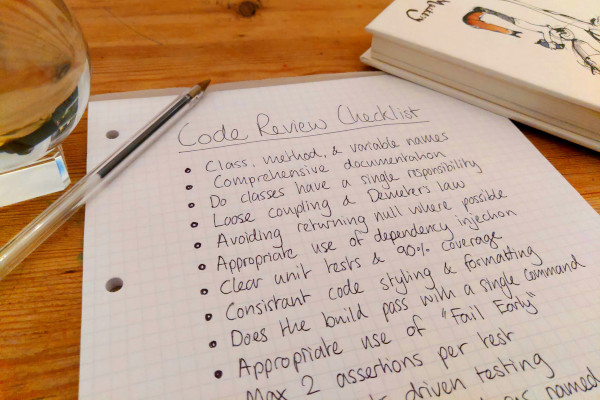 Code Review Checklist
• Class, method, & variable names
• Comprehensive documentation
• Do classes have a single responsibility
• Loose coupling & Demeter's law
• Avoiding returning null where possible
• Appropriate use of dependency injection
• Clear unit tests & 90% coverage
• Consistant code styling & formatting
• Does the build pass with a single command
• Appropriate use of "Fail Early"
Max 2 assertions per test
driven testing
named